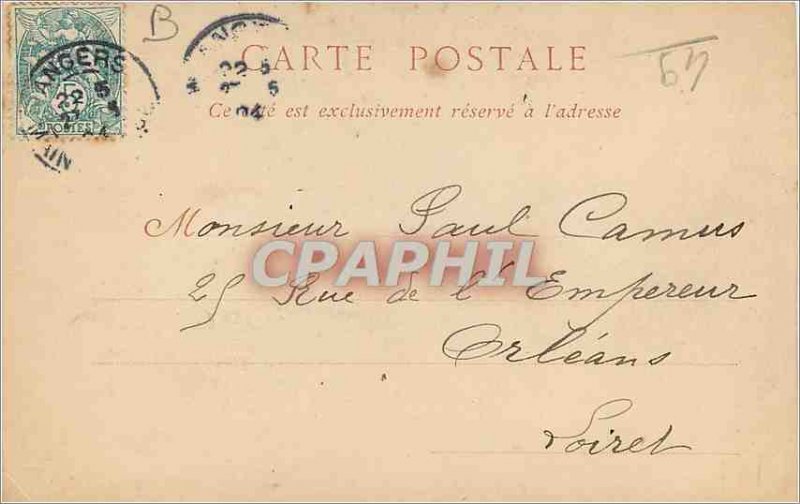 B
ANGERS
22
5
POSTES
22
5
04
CARTE POSTALE
69
Ce côté est exclusivement réservé à l'adresse
Monsieur Paul Camus
CPAPHIL
25 Rue de l'Empereur
Orléans
Loiret